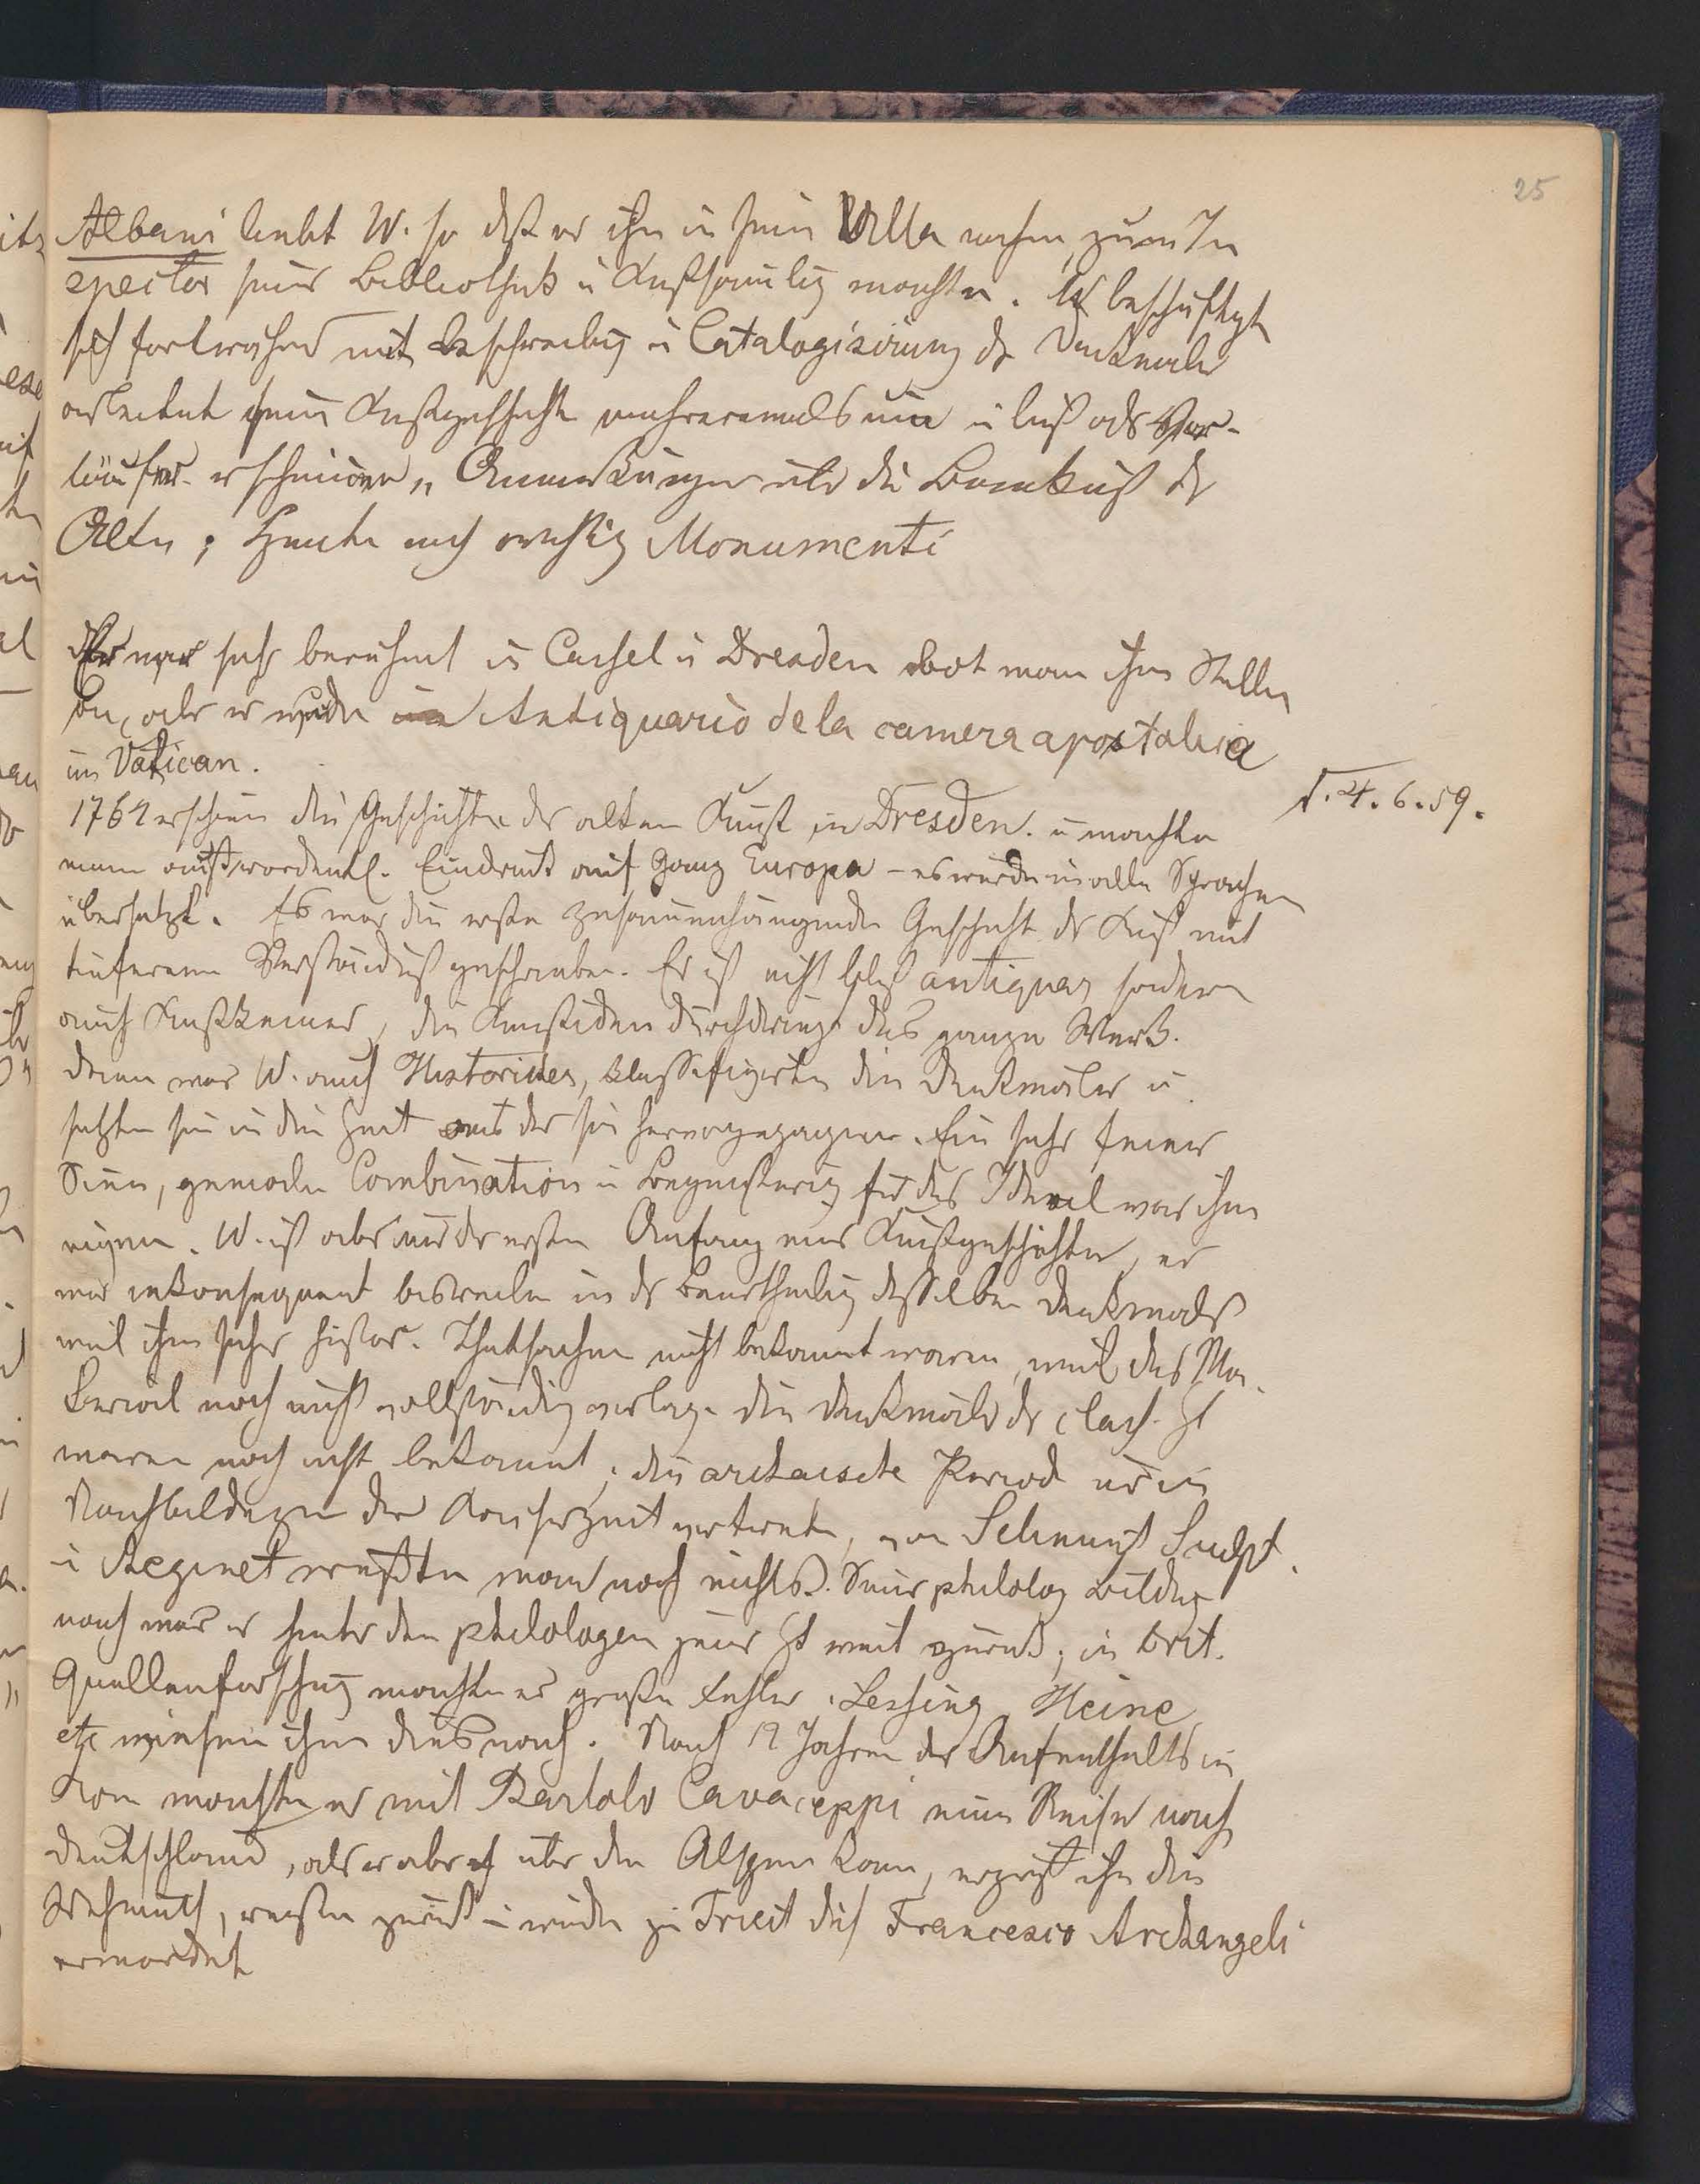 25
Albani liebt W. so dß er ihn in seine Villa nahm, zum In
spector seiner Bibliothek u Kunstsammlg machte. W beschäftigt
sich fortwährend mit Beschreibg u Catalogisirung dr Denkmäler
arbeitet seine Kunstgeschichte mehreremals um u ließ als Vor-
läufer erscheinen „Anmerkungen über die Baukunst dr
Alten; heute noch wichtig Monumenti
Er war sehr berühmt in Cassel u Dresden bot man ihm Stellen
an, aber er wurde Antiquario de la camera apostolica
im Vatican.
1764 erschien die Geschichte der alten Kunst in Dresden. u machte
einen außerordentl. Eindruck auf ganz Europa – es wurde in alle Sprachen
übersetzt. Es war die erste zusammenhängende Geschicht dr Kunst mit
tieferem Verständniß geschrieben. Er ist nicht bloß antiquar sondern
auch Kunstkenner, die Kunstideen durchdringt das ganze Werk.
dann war W. auch Historiker, klassifizirte die Denkmäler u
setzte sie in die Zeit aus der sie hervorgegangen. Ein sehr feiner
Sinn, geniale Combination u Begeisterung für das Ideal war ihm
eigen. W. ist aber nur dr erste Anfang einer Kunstgeschichte, er
war inkonsequent bisweilen in dr Beurtheilg desselben Denkmals
weil ihm sichere histor. Thatsachen nicht bekannt waren, weil das Ma-
terial noch nicht vollständig vorlag. die Denkmäler dr class. Zt
waren noch nicht bekannt; die archaische Period nur in
Nachbildungen der Kaiserzeit vertreten, von Selinunt Sculpt.
u Aeginet wußte man noch nichts. Seiner philolog Bildug
nach war er hinter den philologen seiner Zt weit zurück; in krit.
Quellenforschug machte er große Fehler. Lessing Heine
etc wiesen ihm dies nach. Nach 12 Jahren des Aufenthalts in
Rom machte er mit Bartolo Cavaceppi eine Reise nach
Deutschland, als er aber über den Alpen kam, ergriff ihn die
Wehmuth, reiste zurück u wurde zu Triest durch Francesco Archangeli
ermordet
4. 6. 59.